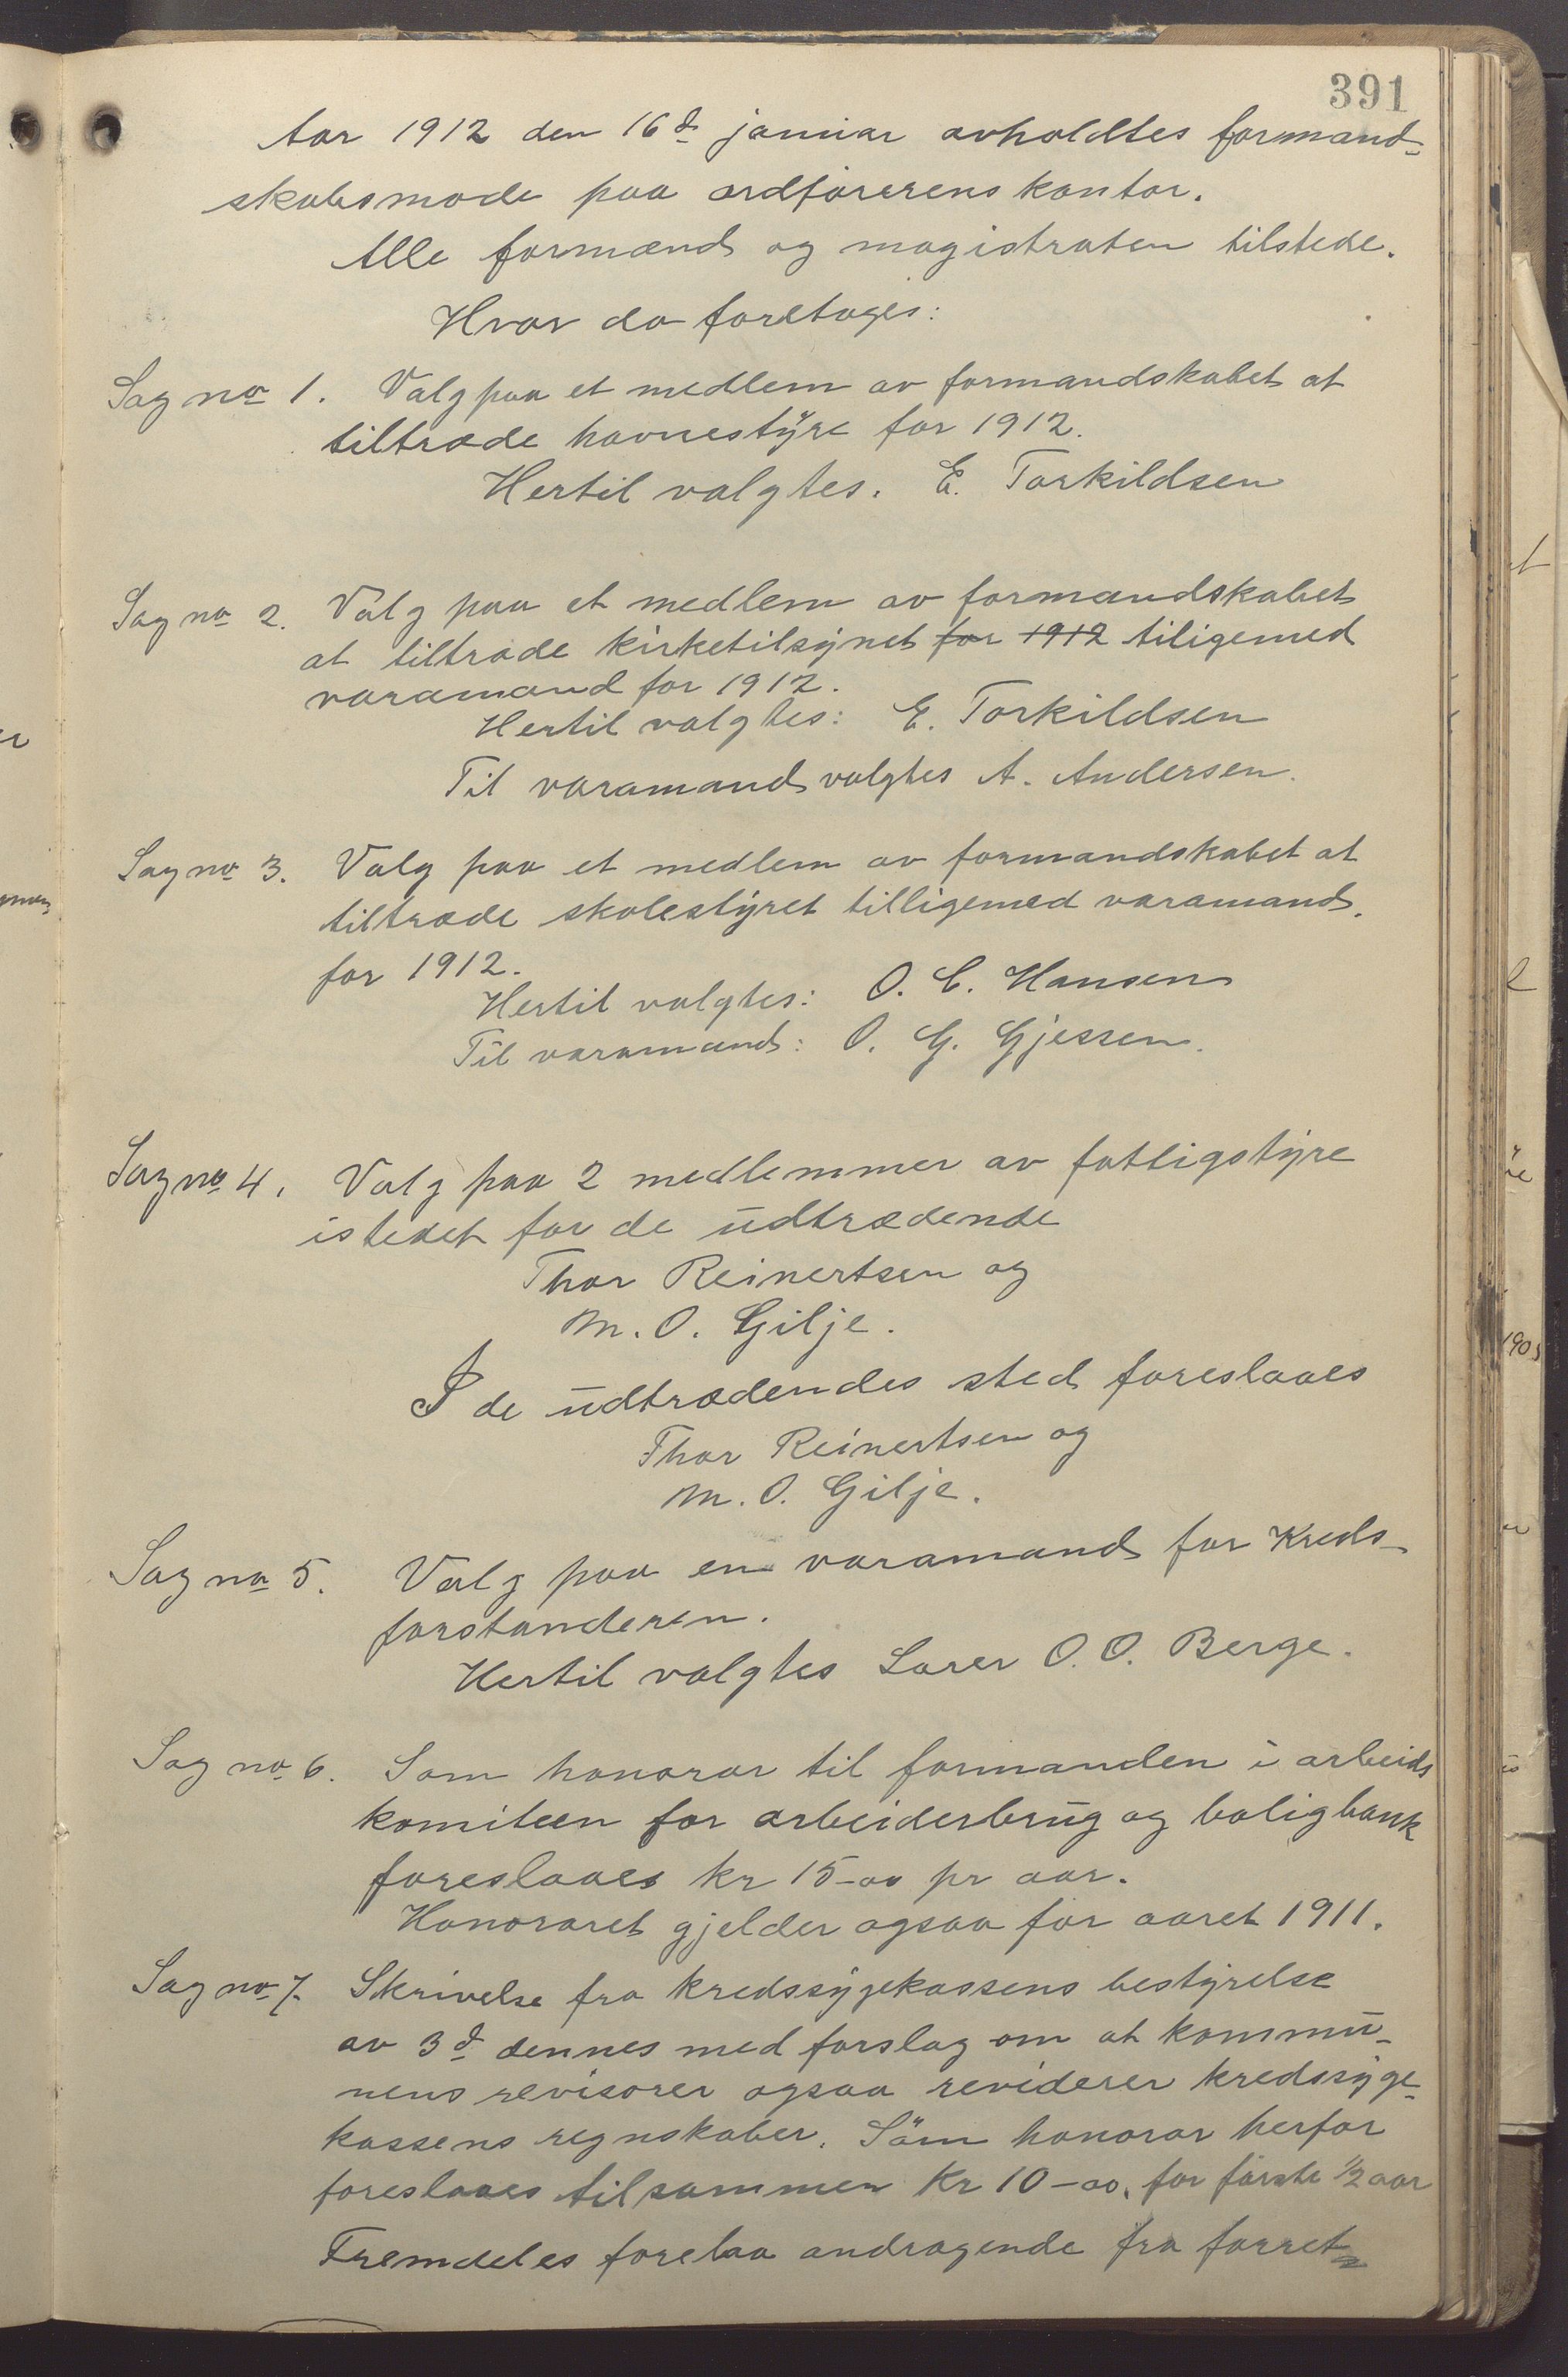 391
Aar 1912 den 16d januar avholdtes formand-
skabsmøde paa ordførerens kontor.
Alle formænd og magistraten tilstede.
Hvor da foretoges:
Sag no 1. Valg paa et medlem av formandskabet at
tiltræde havnestyre for 1912.
Hertil valgtes. E. Torkildsen
Sag no 2. Valg paa et medlem av formandskabet
at tiltræde kirketilsynet for 1912 tiligemed
varamand for 1912.
Hertil valgtes: E. Torkildsen
Til varamand valgtes A. Andersen.
Sag no 3. Valg paa et medlem av formandskabet at
tiltræde skolestyret tilligemed varamand.
for 1912.
Hertil valgtes: O. C. Hansen
Til varamand: O. G. Gjessen.
Sag no 4. Valg paa 2 medlemmer av fattigstyre
istedet for de udtrædende
Thor Reinertsen og
M. O. Gilje.
I de udtrædendes sted foreslaaes
Thor Reinertsen og
M. O. Gilje.
Sag no 5. Valg paa en varamand for Kreds-
forstanderen.
Hertil valgtes Lærer O. O. Berge.
Sag no 6. Som honorar til formanden i arbeids
komiteen for arbeiderbrug og boligbank
foreslaaes kr 15-00 pr aar.
Honoraret gjelder ogsaa for aaret 1911.
Sag no 7. Skrivelse fra kredssygekassens bestyrelse
av 3d dennes med forslag om at kommu-
nens revisorer ogsaa reviderer kredssyge-
kassens regnskaber. Som honorar herfor
foreslaaes tilsammen Kr 10-00. for første 1/2 aar
Fremdeles forelaa andragende fra forret-